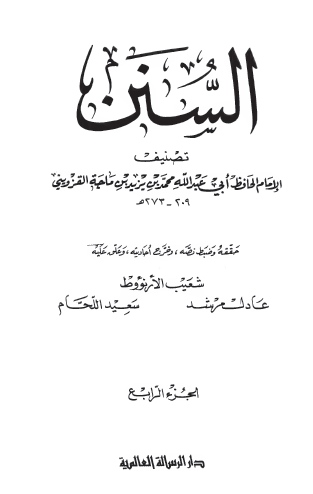 السُّنَن
تصنيف
الإمام الحافظ أبي عبد الله محمد بن يزيد بن ماجة القزويني
٢٠٩ - ٢٧٣هـ
حققه وضبط نصه، وخرج أحاديثه، وعلق عليه
شعيب الأرنؤوط
عادل مرشد سعيد اللحام
الجزء الرابع
دار الرسالة العالمية